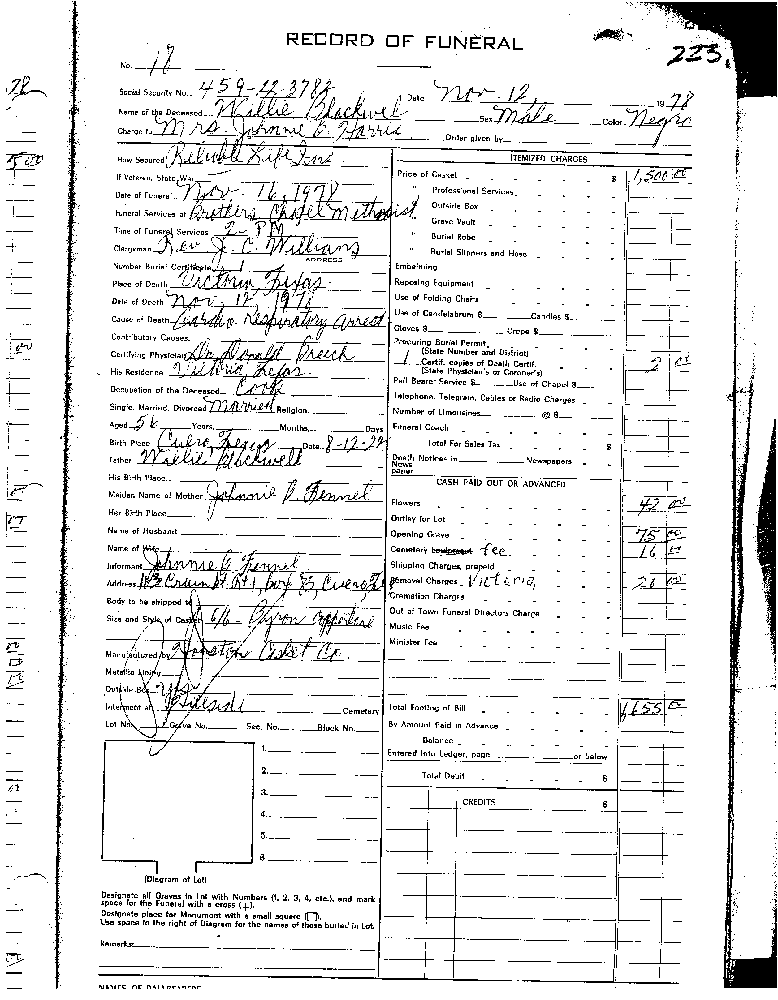 RECORD OF FUNERAL
223.
No. 18
Social Security No. 459-22-3782 Date Nov. 12, 1978
Name of the Deceased Willie Blackwel Sex Male Color Negro
Charge to Mrs. Johnnie G. Harris Order given by
How Secured Reliable Life Ins
If Veteran, State War
Date of Funeral Nov. 16, 1978
Funeral Services at Brothers Chapel Methodist
Time of Funeral Services 2-PM
Clergyman Rev J. C. Williams
ADDRESS
Number Burial Certificate
Place of Death Victoria, Texas
Date of Death Nov. 12, 1978
Cause of Death Cardio Respiratory Arrest
Contributory Causes
Certifying Physician Dr Donald Breech
His Residence Victoria Texas
Occupation of the Deceased Cook
Single, Married, Divorced Married Religion
Aged 56 Years, Months, Days
Birth Place Cuero Texas Date 8-12-22
Father Willie Blackwell
His Birth Place
Maiden Name of Mother Johnnie B. Fennet
Her Birth Place
Name of Husband
Name of Wife
Informant Johnnie G Fennel
Address Rt 1, box Cuero
Body to be shipped to
Size and Style of Casket 6/6 Byron
Manufactured by Houston Casket Co.
Metallic Lining
Outside Box
Interment at Hillside Cemetery
Lot No. Grave No. Sec. No. Block No.
1.
2.
3.
4.
5.
6.
(Diagram of Lot)
Designate all Graves in Lot with Numbers (1, 2, 3, 4, etc.), and mark
space for the Funeral with a cross (+).
Designate place for Monument with a small square (□).
Use space to the right of Diagram for the names of those buried in Lot.
Remarks:
NAMES OF PALLBEARERS
ITEMIZED CHARGES
Price of Casket $ 1,500 00
" Professional Services
" Outside Box
" Grave Vault
" Burial Robe
" Burial Slippers and Hose
Embalming
Reposing Equipment
Use of Folding Chairs
Use of Candelabrum $ Candles $
Gloves $ Crepe $
Procuring Burial Permit
(State Number and District)
1 Certif. copies of Death Certif. 2 00
(State Physician's or Coroner's)
Pall Bearer Service $ Use of Chapel $
Telephone, Telegram, Cables or Radio Charges
Number of Limousines @ $
Funeral Coach
Total For Sales Tax $
Death Notices in Newspapers
News
paper
CASH PAID OUT OR ADVANCED
Flowers 42 00
Outlay for Lot
Opening Grave 75 00
Cemetery fee 16 00
Shipping Charges, prepaid
Removal Charges Victoria, 20 00
Cremation Charges
Out of Town Funeral Directors Charge
Music Fee
Minister Fee
Total Footing of Bill 1,655 00
By Amount Paid in Advance
Balance
Entered into Ledger, page or below
Total Debit $
CREDITS $